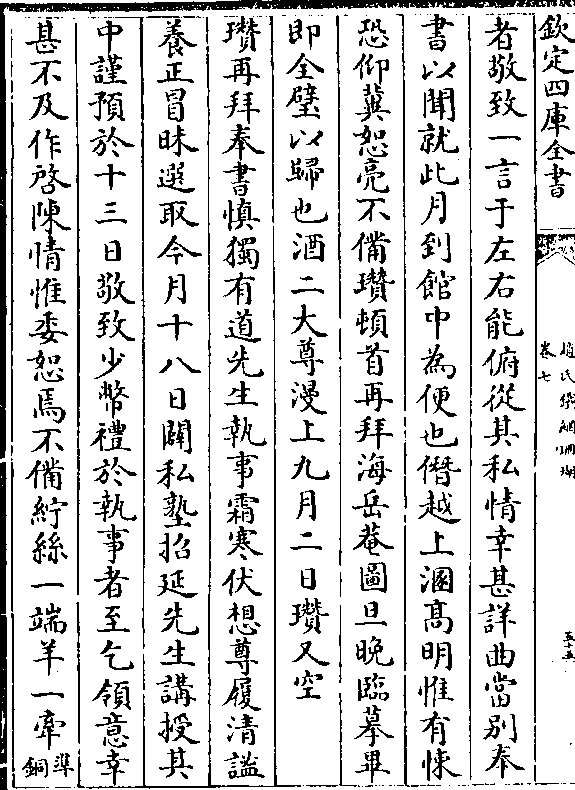 欽定四庫全書
趙氏鐵網珊瑚
卷七
五十五
者敬致一言于左右能俯從其私情幸甚詳曲當别奉
書以聞就此月到館中為便也僭越上溷高明惟有悚
恐仰冀恕亮不備瓚頓首再拜海岳菴圖旦晚臨摹畢
即全璧以歸也酒二大尊漫上九月二日瓚又空
瓚再拜奉書慎獨有道先生執事霜寒伏想尊履清謐
養正冒昧選取今月十八日闢私塾招延先生講授其
中謹預於十三日敬致少幣禮於執事者至乞領意幸
甚不及作啓陳情惟委恕焉不備紵絲一端羊一牽準
銅